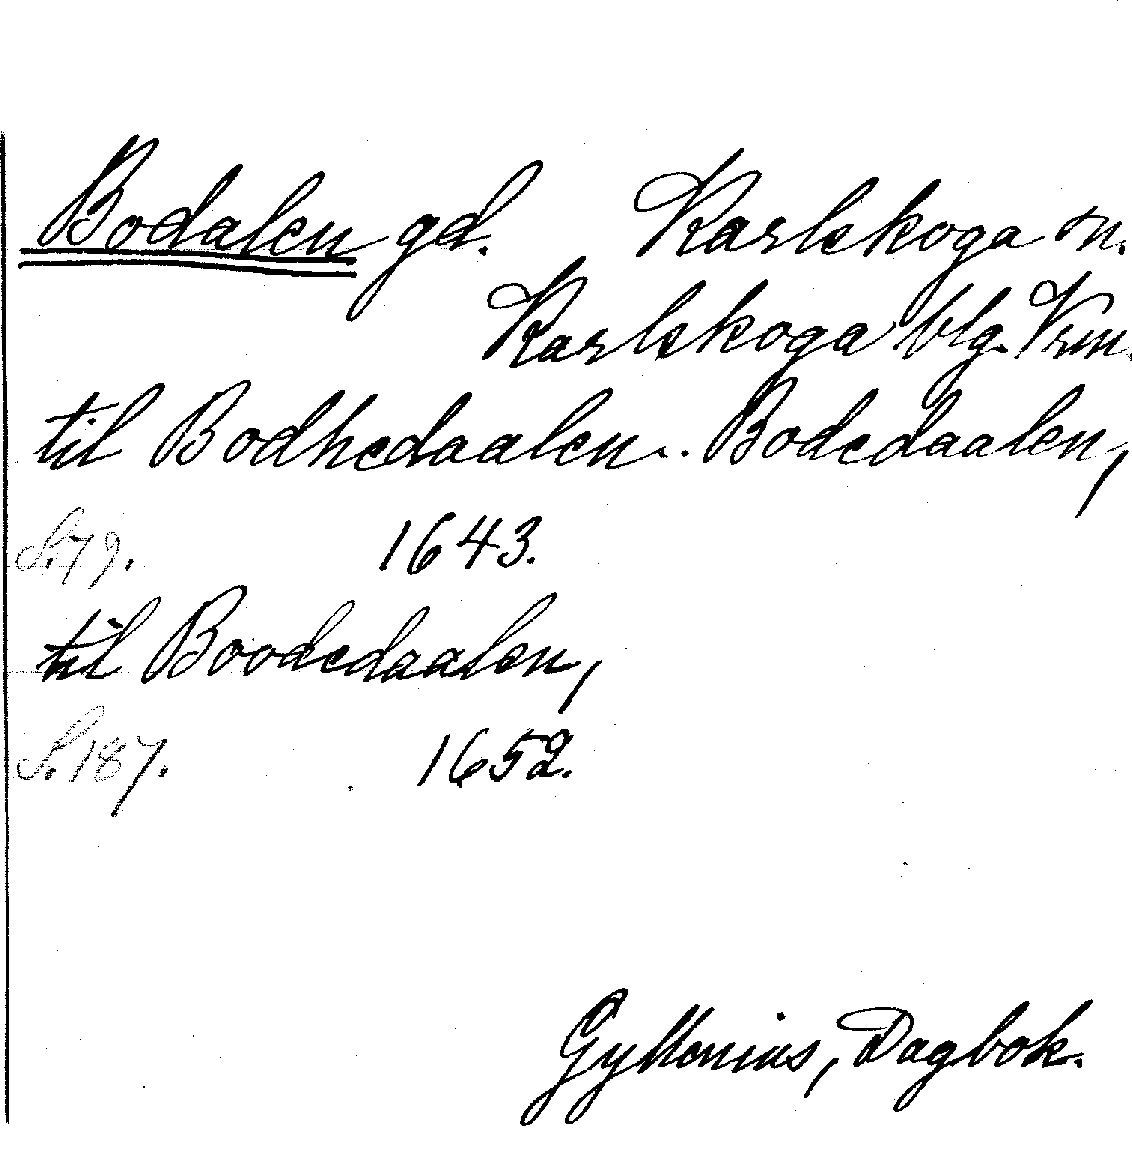 Bodalen gd. Karlskoga sn.
Karlskoga blg. Vrm.
til Bodhedaalen.. Bodedaalen,
S. 79. 1643.
til Boodedaalen,
S. 187. 1652.
Gyllenius, Dagbok.